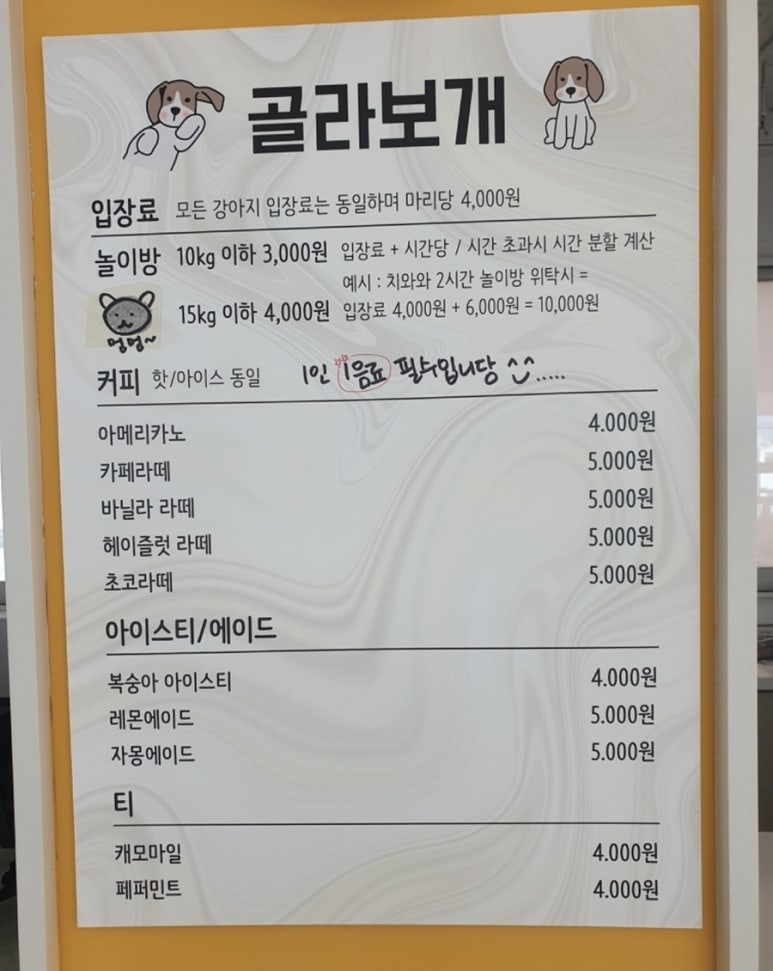 골라보개
입장료 모든 강아지 입장료는 동일하며 마리당 4,000원
놀이방 10kg 이하 3,000원 입장료 + 시간당 / 시간 초과시 시간 분할 계산
예시 : 치와와 2시간 놀이방 위탁시 =
15kg 이하 4,000원 입장료 4,000원 + 6,000원 = 10,000원
멍멍~
커피 핫/아이스 동일 1인 1음료 필수입니당 ^^.....
아메리카노 4.000원
카페라떼 5.000원
바닐라 라떼 5.000원
헤이즐럿 라떼 5.000원
초코라떼 5.000원
아이스티/에이드
복숭아 아이스티 4.000원
레몬에이드 5.000원
자몽에이드 5.000원
티
캐모마일 4.000원
페퍼민트 4.000원